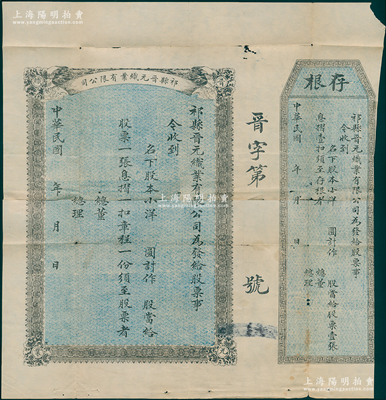 上海陽明拍賣
司公限有業織元晉縣祁
祁縣晉元織業有限公司為發給股票事
今收到
名下股本小洋　圓計作　股當給
股票一張息摺一扣章程一份須至股票者
總董
總理
中華民國　年　月　日
晉字第　號
根存
祁縣晉元織業有限公司為發給股票事
今收到
名下股本小洋　圓計作　股當給股票壹張
息摺壹扣須至存根者
總董
總理
中華民國　年　月　日
上海陽明拍賣
www.hosane.com